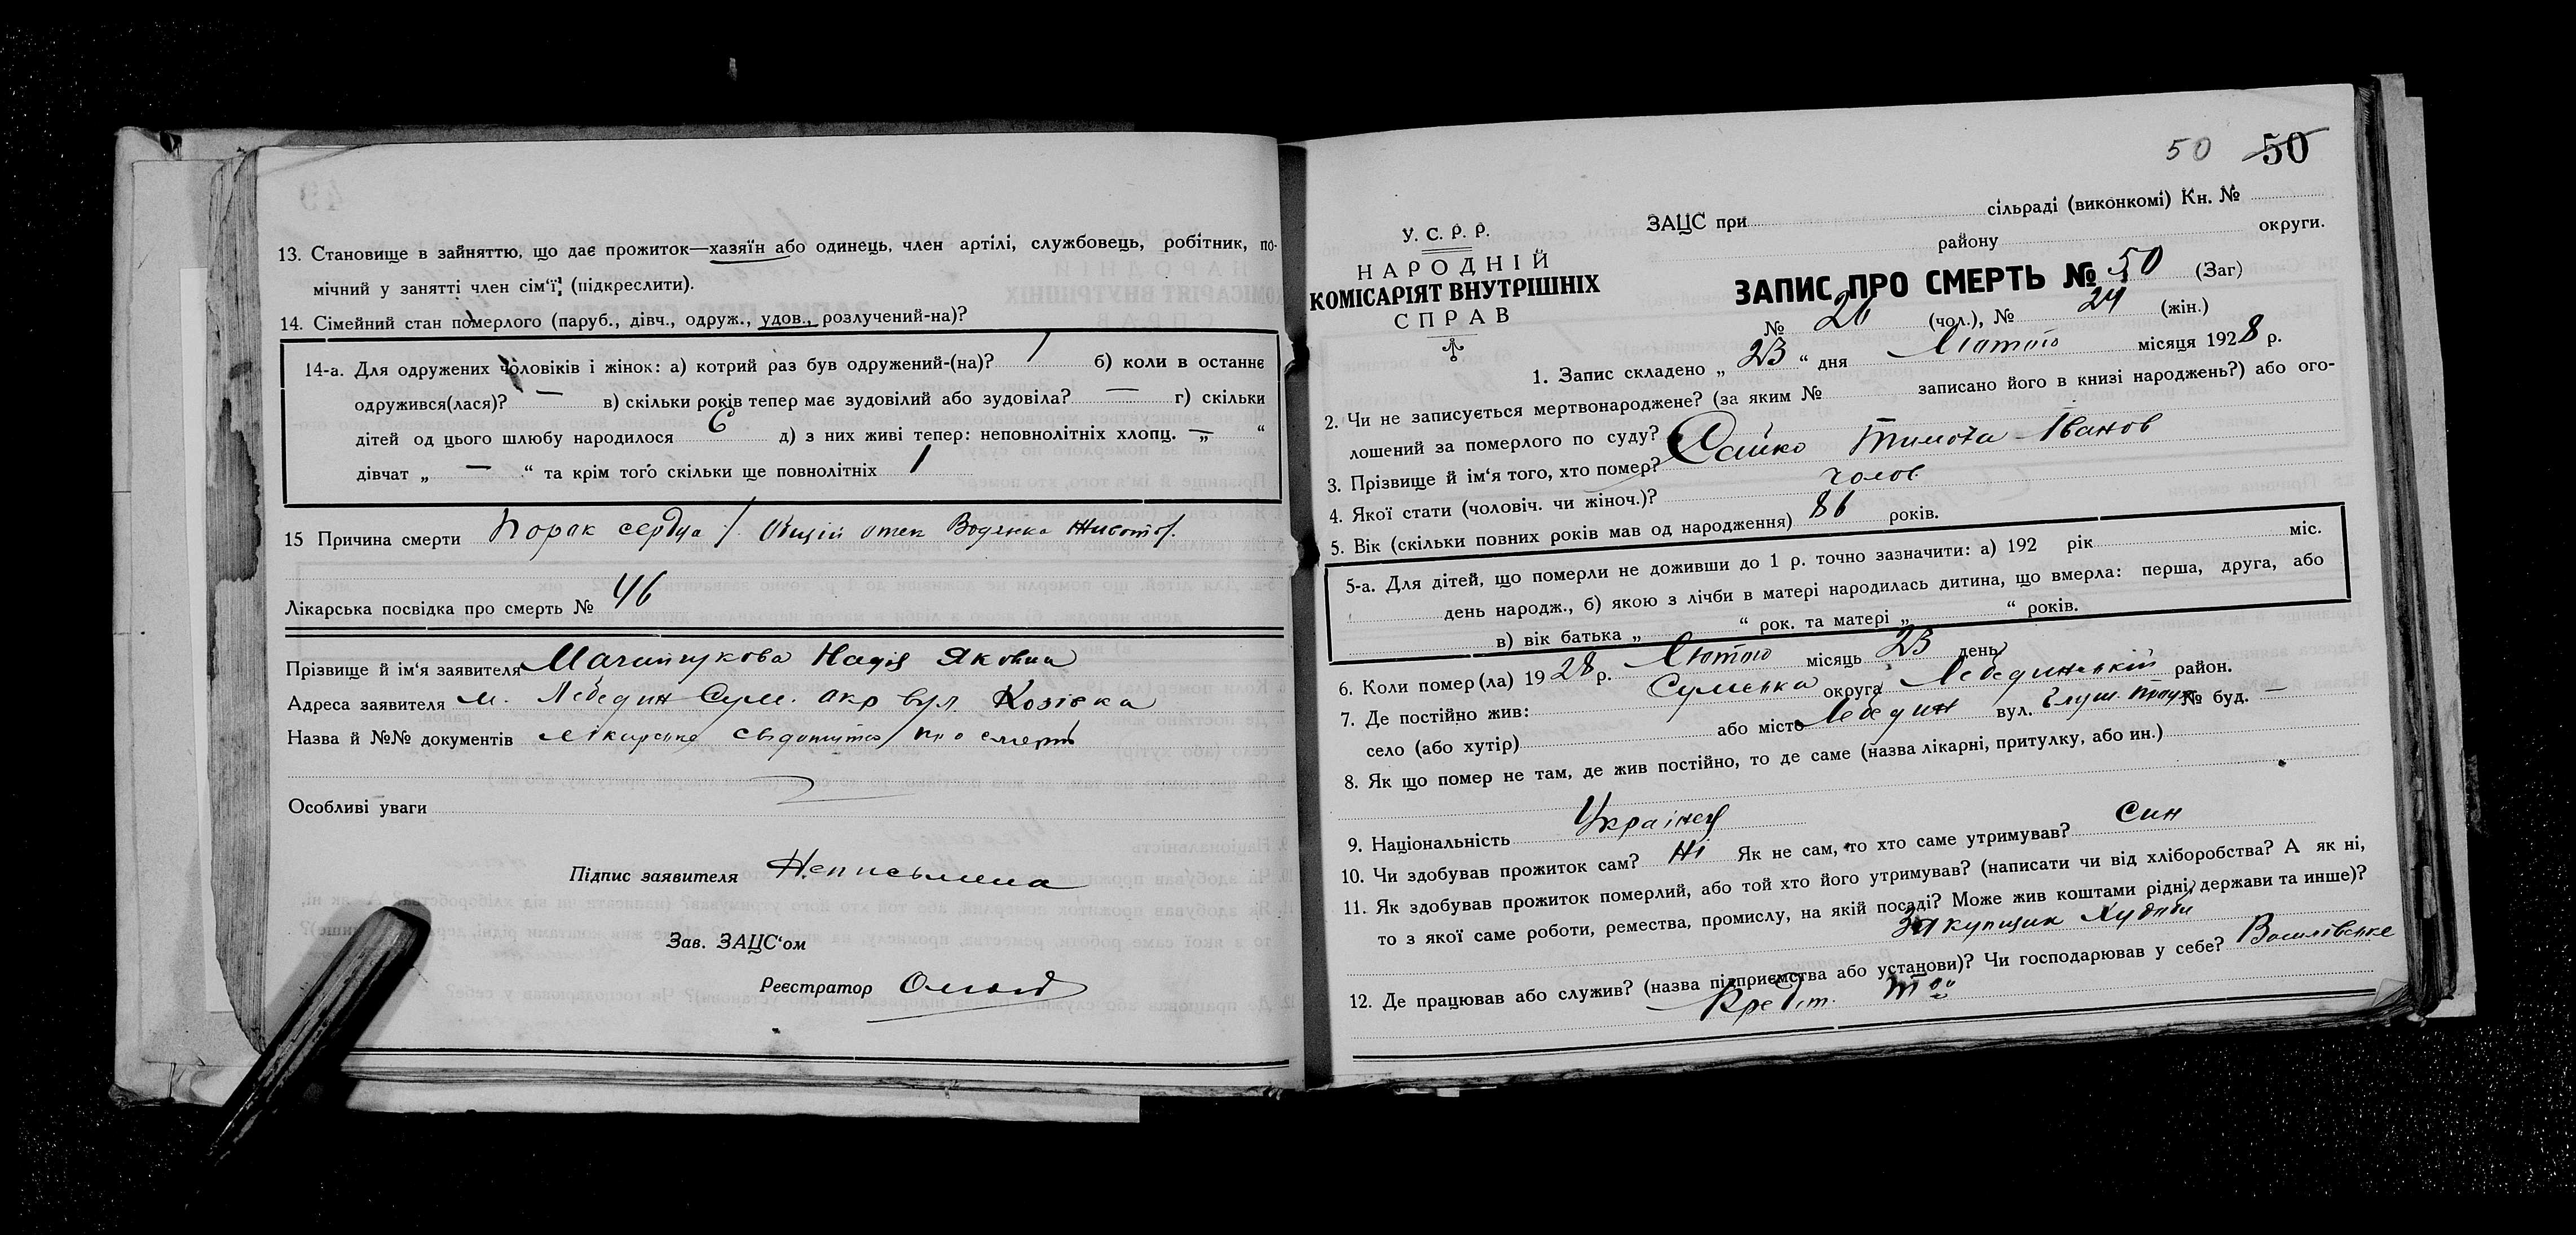 13. Становище в зайняттю, що дає прожиток—хазяїн або одинець, член артілі, службовець, робітник, по-
мічний у занятті член сім'ї; (підкреслити).
14. Сімейний стан померлого (паруб., дівч., одруж., удов., розлучений-на)?
14-а. Для одружених чоловіків і жінок: а) котрий раз був одружений-(на)? 1 б) коли в останнє
одружився(лася)? — в) скільки років тепер має зудовілий або зудовіла? — г) скільки
дітей од цього шлюбу народилося 6 д) з них живі тепер: неповнолітніх хлопц. — „ “
дівчат „ — “ та крім того скільки ще повнолітніх 1
15 Причина смерти Порок сердца / Общій отек Водянка Живота/.
Лікарська посвідка про смерть № 46
Прізвище й ім'я заявителя Надія Яковна
Адреса заявителя м. Лебедин Сум. окр вул. Козівка
Назва й №№ документів Лікарське свідоцтво про смерть
Особливі уваги
Підпис заявителя Неписьмена
Зав. ЗАЦС'ом
Реєстратор
50 50
У. С. Р. Р.
НАРОДНІЙ
КОМІСАРІЯТ ВНУТРІШНІХ
СПРАВ
ЗАЦС при сільраді (виконкомі) Кн. №
району округи.
ЗАПИС ПРО СМЕРТЬ № 50 (Заг)
№ 26 (чол.), № 24 (жін.)
1. Запис складено „ 23 “ дня Лютого місяця 1928 р.
2. Чи не записується мертвонароджене? (за яким № записано його в книзі народжень?) або ого-
лошений за померлого по суду?
3. Прізвище й ім'я того, хто помер? Сайко Тимоха Іванов
4. Якої стати (чоловіч. чи жіноч.)? чолов.
5. Вік (скільки повних років мав од народження) 86 років.
5-а. Для дітей, що померли не доживши до 1 р. точно зазначити: а) 192 рік міс.
день народж., б) якою з лічби в матері народилась дитина, що вмерла: перша, друга, або
в) вік батька „ “ рок. та матері „ “ років.
6. Коли помер(ла) 1928 р. Лютого місяць 23 день
7. Де постійно жив: Сумська округа Лебединській район.
село (або хутір) або місто Лебедин вул. № буд. —
8. Як що помер не там, де жив постійно, то де саме (назва лікарні, притулку, або ин.)
9. Національність Українец
10. Чи здобував прожиток сам? Ні Як не сам, то хто саме утримував? Син
11. Як здобував прожиток померлий, або той хто його утримував? (написати чи від хліборобства? А як ні,
то з якої саме роботи, ремества, промислу, на якій посаді? Може жив коштами рідні, держави та инше)?
Закупщик Худоби
12. Де працював або служив? (назва підприємства або установи)? Чи господарював у себе? Василівське
Кредіт. Т-во